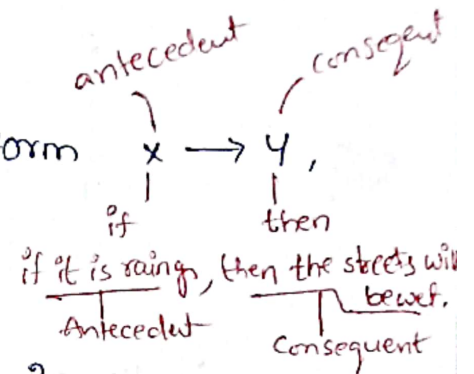 antecedent consequent
orm x → y,
if then
if it is raing, then the streets will
be wet.
Antecedent
Consequent